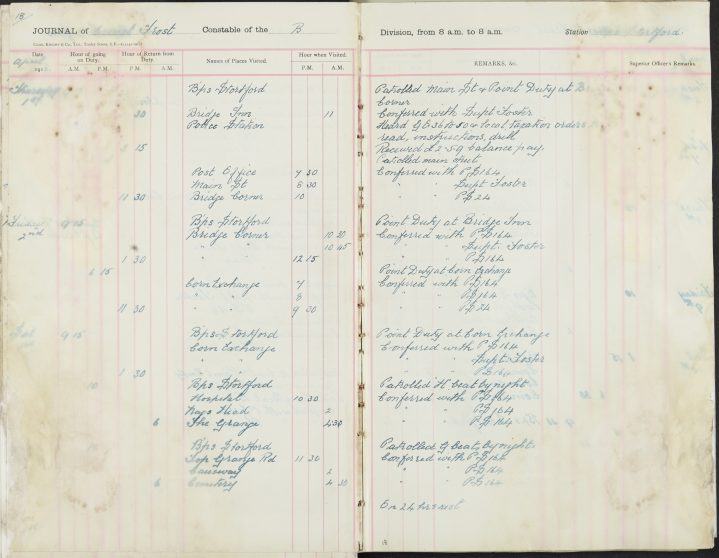 18.
JOURNAL of Frost Constable of the B Division, from 8 a.m. to 8 a.m. Station
Date Hour of going on Duty. Hour of Return from Duty. Names of Places Visited. Hour when Visited. REMARKS, &c. Superior Officer's Remarks.
A.M. P.M. P.M. A.M. P.M. A.M.
April
Thursday 1st Bps Stortford Patrolled Main St & Point Duty at B
Corner
30 Bridge Inn 11 Conferred with Supt Foster
Police Station Heard G.O. 36 to 50 & local taxation orders
read, instructions, drill
15 Received £2-5-9 balance pay
Patrolled main street
Post Office 7 30 Conferred with P.S 164
Main St 8 30 " " Supt Foster
11 30 Bridge Corner 10 " " P.S 24
Friday 2nd 9 15 Bps Stortford Point Duty at Bridge Inn
Bridge Corner 10 20 Conferred with P.S 164
" " 10 45 " " Supt. Foster
1 30 " " 12 15 " " P.S 164
6 15 Point Duty at Corn Exchange
Corn Exchange 7 Conferred with P.S 164
" " 8 " " P.S 164
11 30 " " 9 30 " " P.S 24
Sat 9 15 Bps Stortford Point Duty at Corn Exchange
Corn Exchange Conferred with P.S 164
" " " " Supt. Foster
1 30 " " " " P.S 164
10 Bps Stortford Patrolled H beat by night
Hospital 10 30 Conferred with P.S 164
Nags Head 2 " " P.S 164
6 The Grange 4 30 " " P.S 164
Bps Stortford Patrolled G beat by night
Top Grange Rd 11 30 Conferred with P.S 164
Causeway " " P.S 164
6 Cemetery 4 30 " " P.S 164
On 24 hrs rest